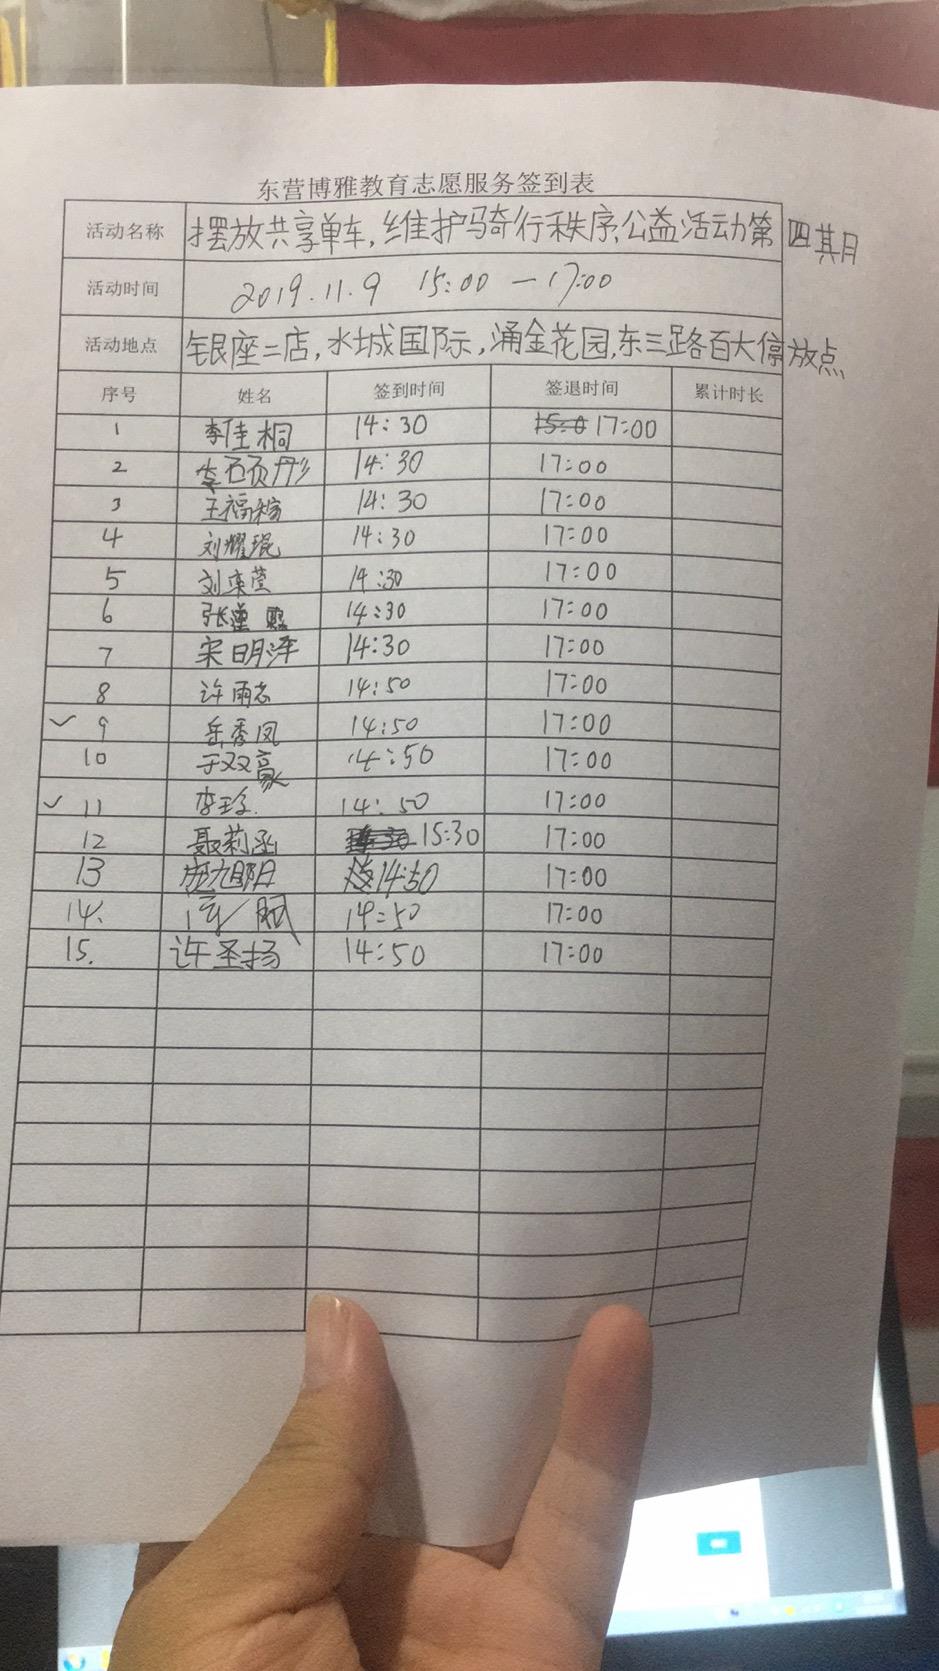 东营博雅教育志愿服务签到表
活动名称 摆放共享单车,维护骑行秩序,公益活动第四期
活动时间 2019.11.9 15:00 — 17:00
活动地点 银座二店,水城国际,涌金花园,东三路百大停放点
序号 姓名 签到时间 签退时间 累计时长
1 李佳桐 14:30 17:00
2 李硕彤 14:30 17:00
3 王福稼 14:30 17:00
4 刘耀琨 14:30 17:00
5 刘栾莹 14:30 17:00
6 张 14:30 17:00
7 宋明泽 14:30 17:00
8 许雨志 14:50 17:00
✓ 9 岳秀凤 14:50 17:00
10 于双豪 14:50 17:00
✓ 11 李珍 14:50 17:00
12 聂莉函 15:30 17:00
13 庞旭阳 14:50 17:00
14. 14:50 17:00
15. 许圣扬 14:50 17:00